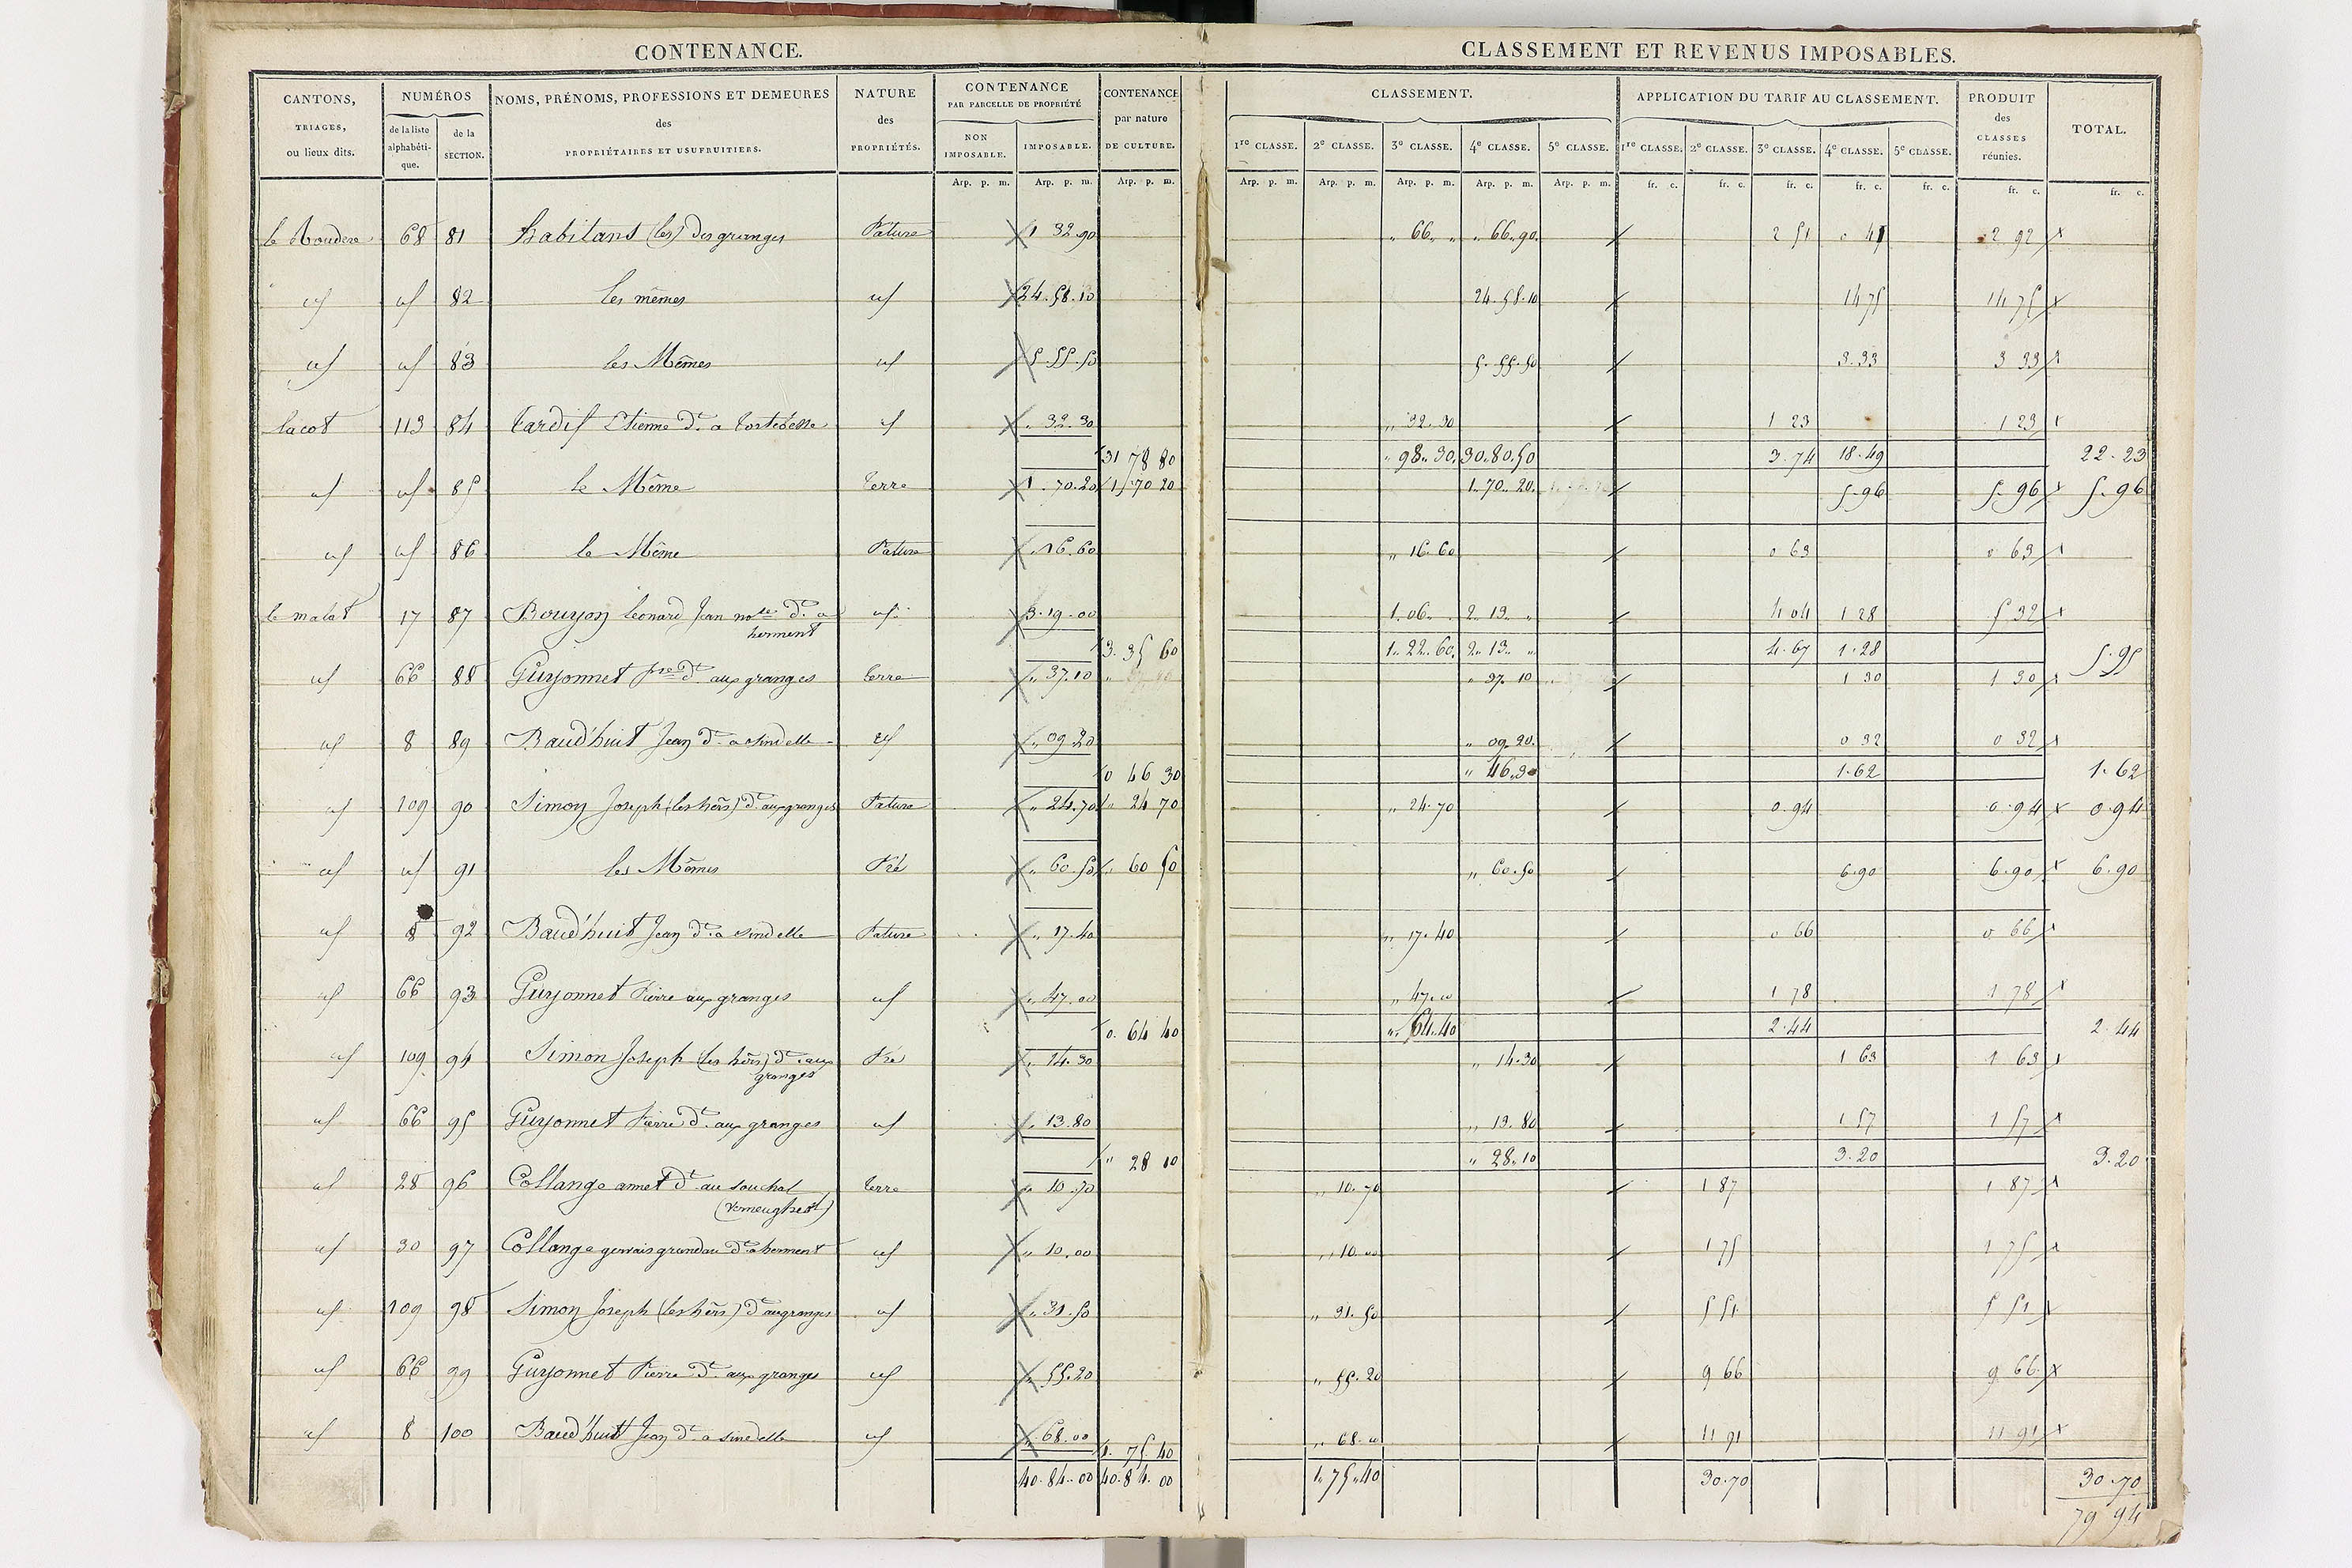 CONTENANCE. CLASSEMENT ET REVENUS IMPOSABLES.
CANTONS, TRIAGES, ou lieux dits. NUMÉROS de la liste alphabétique. de la SECTION. NOMS, PRÉNOMS, PROFESSIONS ET DEMEURES des PROPRIÉTAIRES ET USUFRUITIERS. NATURE des PROPRIÉTÉS. CONTENANCE PAR PARCELLE DE PROPRIÉTÉ NON IMPOSABLE. IMPOSABLE. CONTENANCE par nature DE CULTURE. CLASSEMENT. 1re CLASSE. 2e CLASSE. 3e CLASSE. 4e CLASSE. 5e CLASSE. APPLICATION DU TARIF AU CLASSEMENT. 1re CLASSE. 2e CLASSE. 3e CLASSE. 4e CLASSE. 5e CLASSE. PRODUIT des CLASSES réunies. TOTAL.
Arp. p. m. Arp. p. m. Arp. p. m. Arp. p. m. Arp. p. m. Arp. p. m. Arp. p. m. Arp. p. m. fr. c. fr. c. fr. c. fr. c. fr. c. fr. c. fr. c.
68 81 habitans (les) des granges Pature 1 32.90 " 66 " " 66.90 2 51 0 41 2 92
id id 82 les mêmes id 24.58.10 24.58.10 14 75 14 75
id id 83 les Mêmes id 5.55.50 5.55.50 3.33 3 33
lacot 113 84 tardif Etienne dt. a tortebesse id " 32.30 " 32.30 1 23 1 23
31 78 80 " 98.30 30.80.50 3.74 18.49 22.23
id id 85 le Même terre 1.70.20 1 70 20 1.70.20 5.96 5.96 5.96
id id 86 le Même Pature " 16.60 " 16.60 0 63 0 63
le malat 17 87 Bouyon leonard Jean nore dt. a id 3.19.00 1.06 " 2.13 " 4 04 1 28 5 32
herment
3.35 60 1.22.60 2.13 " 4.67 1.28 5.95
id 66 88 Guyonnet pre dt aux granges terre " 37.10 " 37.10 1 30 1 30
id 8 89 Baud'huit Jean dt a sindelle id " 09.20 " 09.20 0 32 0 32
0 46 30 " 46.30 1.62 1.62
id 109 90 Simon Joseph (les hérs) dt. aux granges Pature " 24.70 " 24 70 " 24.70 0.94 0.94 0.94
id id 91 les Mêmes Pré " 60.50 " 60 50 " 60.50 6.90 6.90 6.90
id 8 92 Baud'huit Jean dt. a sindelle Pature " 17.40 " 17.40 0 66 0 66
id 66 93 Guyonnet Pierre aux granges id " 47.00 " 47.00 1 78 1 78
0.64 40 " 64.40 2.44 2.44
id 109 94 Simon Joseph (les hérs) dt. aux Pré " 14.30 " 14.30 1 63 1 63
granges
id 66 95 Guyonnet Pierre dt. aux granges id " 13.80 " 13.80 1 57 1 57
" 28 10 " 28.10 3.20 3.20
id 28 96 Collange annet dt au souchal terre " 10.70 " 10.70 1 87 1 87
(verneugheol)
id 30 97 Collange gervais dt. a herment id " 10.00 " 10.00 1 75 1 75
id 109 98 Simon Joseph (les hérs) dt aux granges id " 31.50 " 31.50 5 51 5 51
id 66 99 Guyonnet Pierre dt. aux granges id " 55.20 " 55.20 9 66 9 66
id 8 100 Baud'huit Jean dt. a sindelle id " 68.00 " 68.00 11 91 11 91
1.75.40
40.84.00 40.84.00 1.75.40 30.70 30.70
79 94